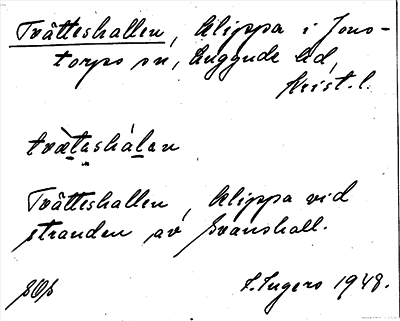 Tvätteshallen, klippa i Jons-
torps sn, Luggude hd,
Krist. l.
tvæ̀tashálan
Tvätteshallen, klippa vid
stranden av Svanshall.
S. Ingers 1948.